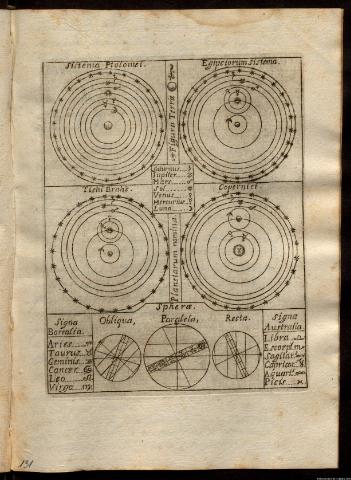 Sistema Ptolomei.
Egiptiorum sistema.
Figura Terræ
Saturnus
Jupiter
Mars
Sol
Venus
Mercurius
Luna
Tichi Brahe.
Copernici.
Planetarum nomina.
Spheræ.
Signa
Borealia.
Aries
Taurus
Geminis
Cancer
Leo
Virgo
Obliqua,
Paralela,
Recta.
Signa
Australia
Libra
Escorpi
Sagitar
Capricor
Aquari
Picis
131